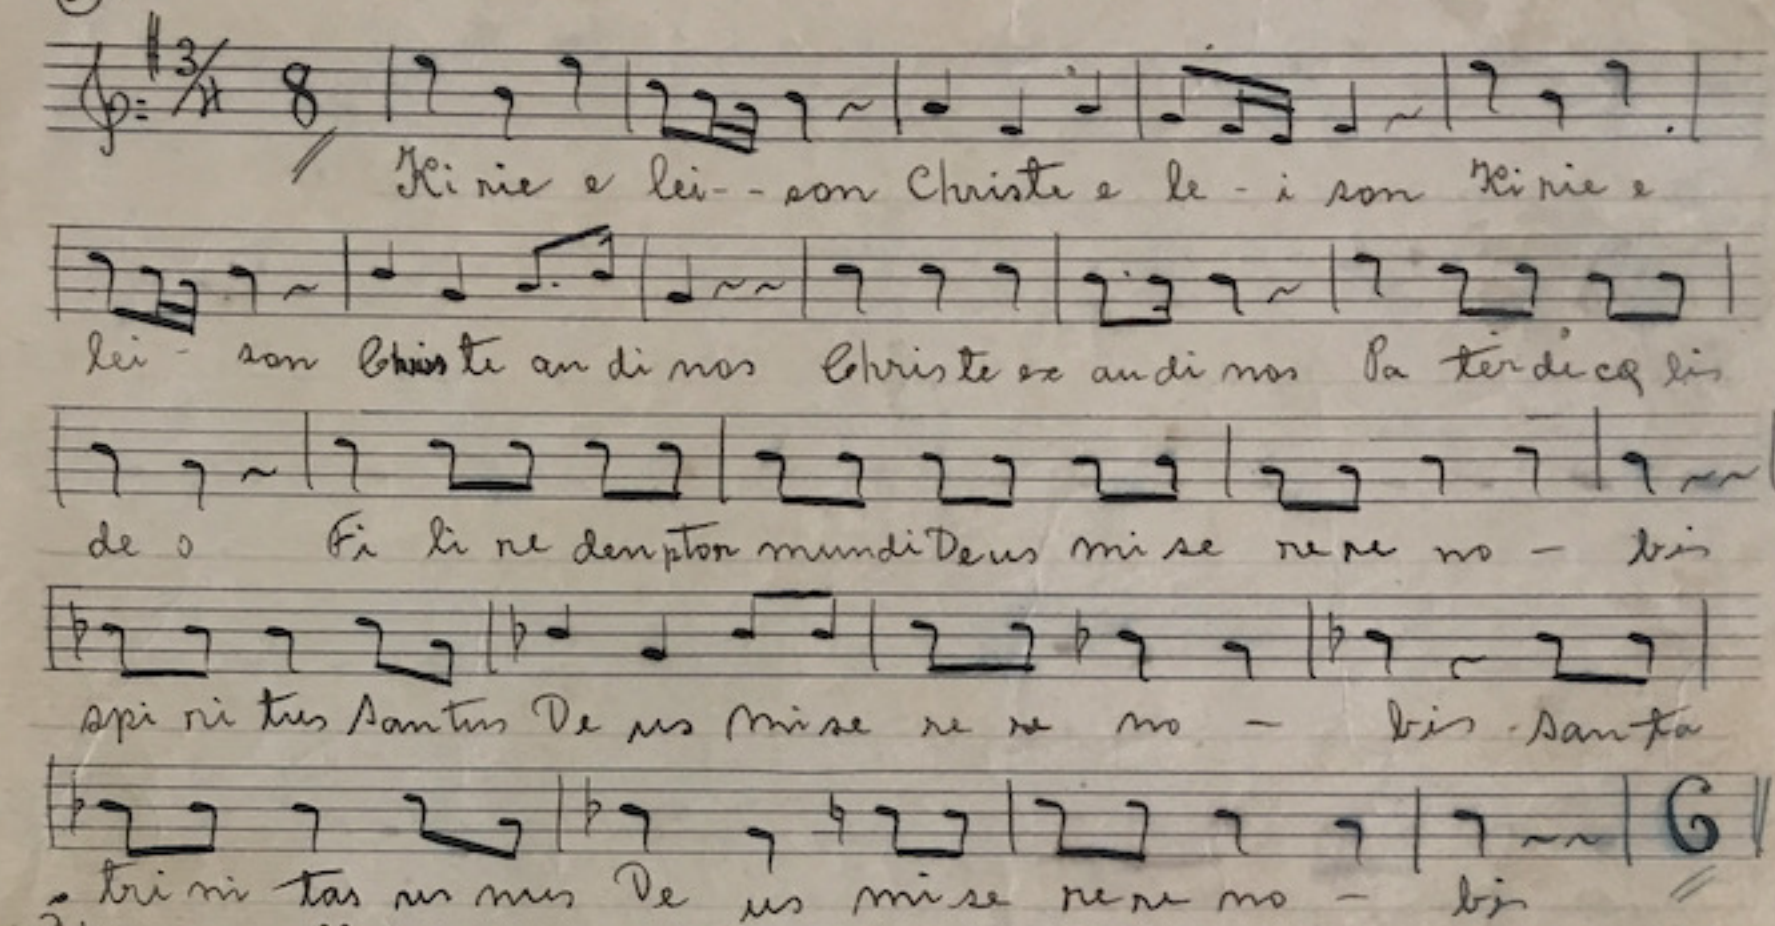 3/4 8
Kirie e lei - - son Christe e le - i son Kirie e
lei - son Christe audi nos Christe ex audi nos Pa ter de cę lis
de o Fi li re denptor mundi Deus mi se re re no - bis
spi ri tus Santus De us Mi se re re no - bis - Santa
tri ni tas us nus De us mi se re re no - bis
6